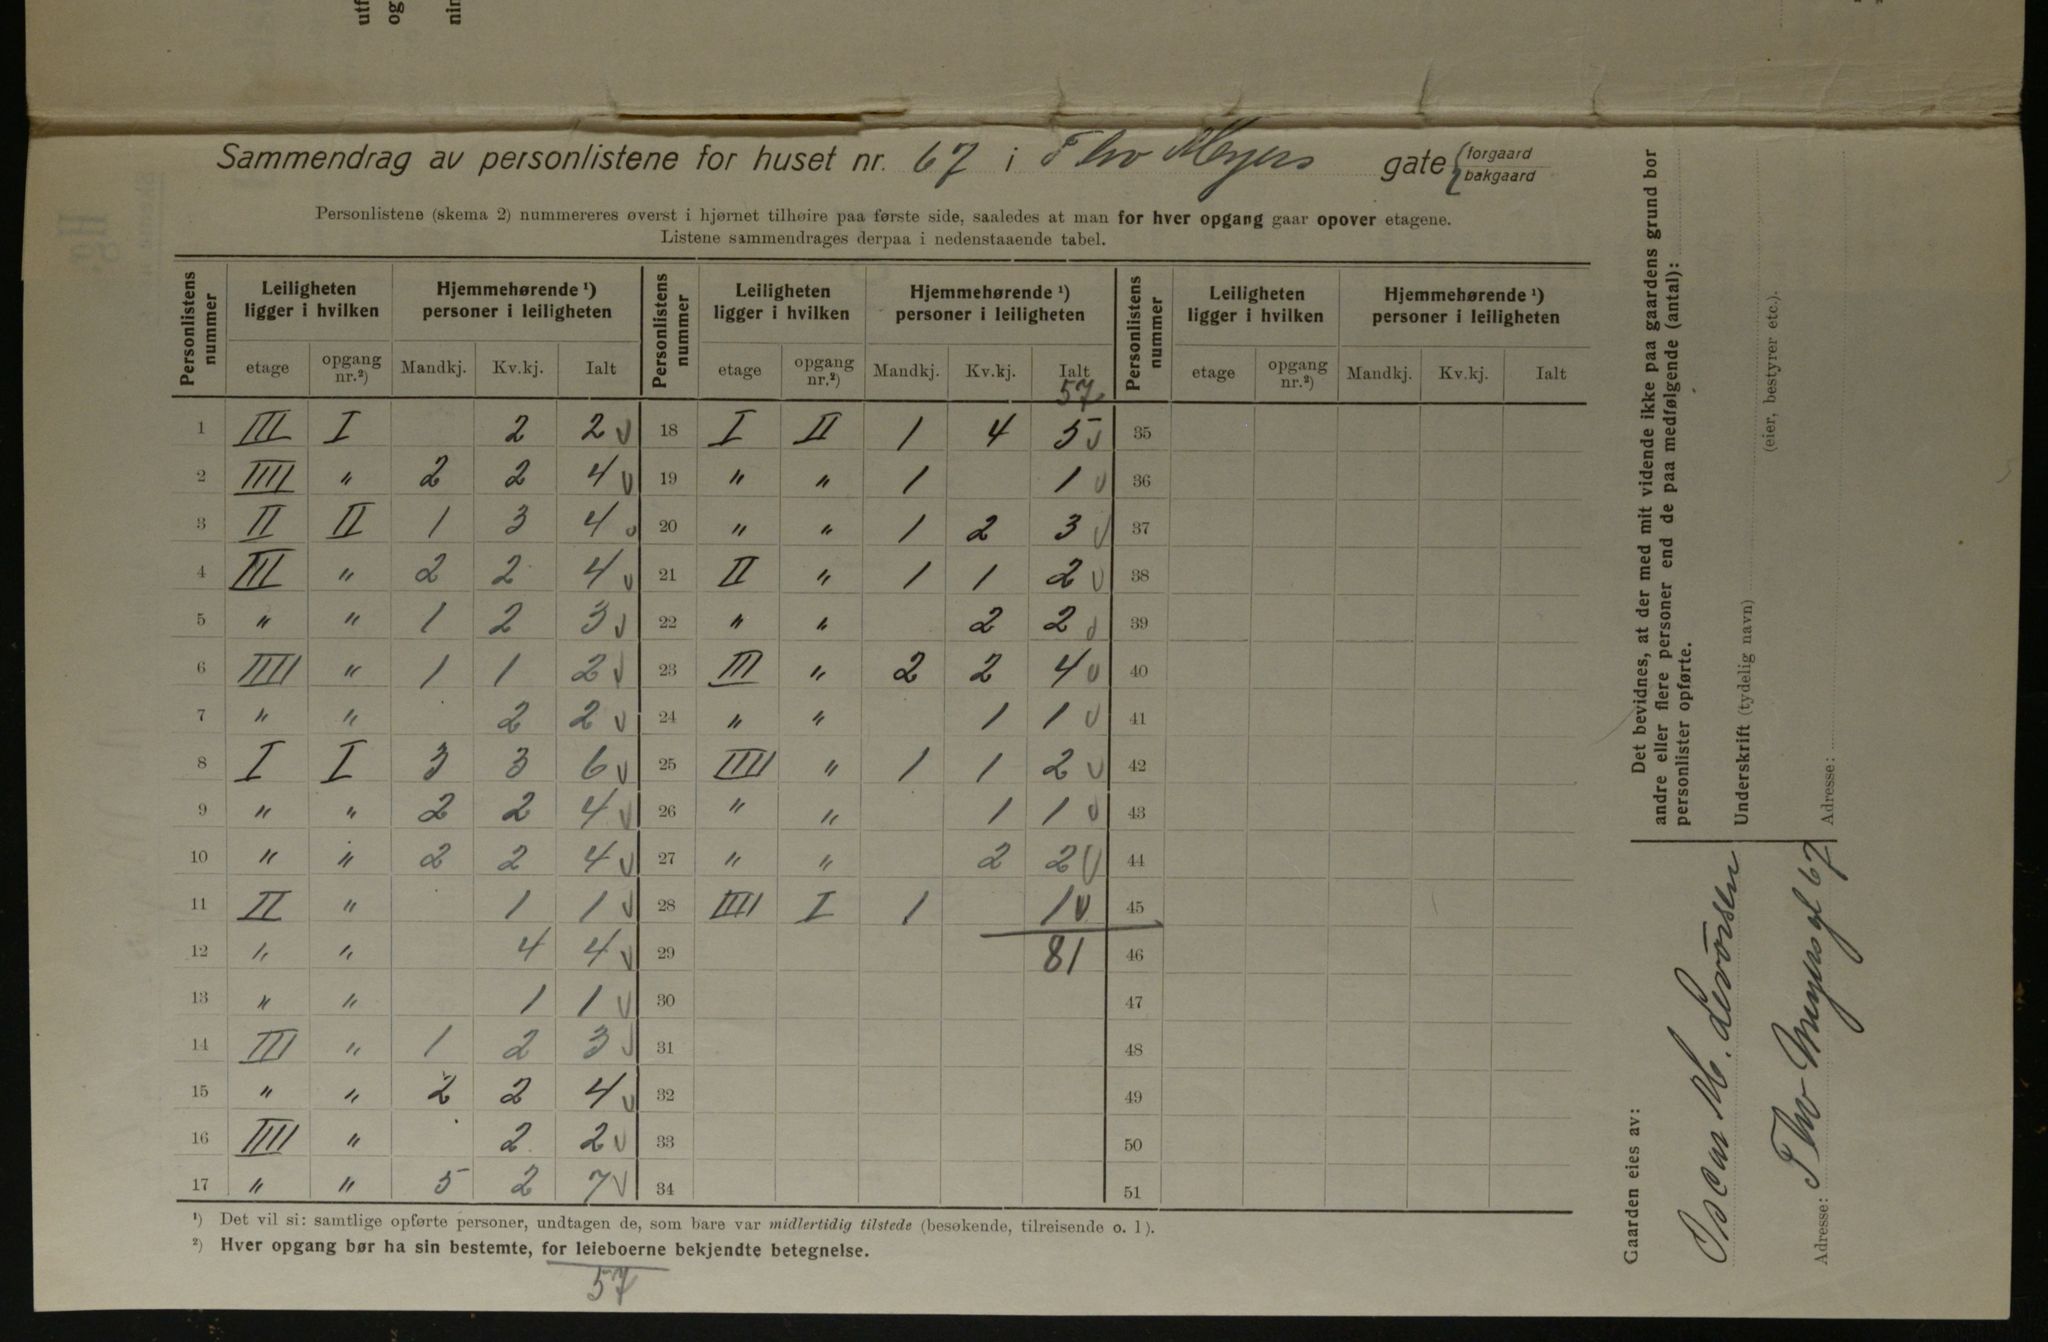 Sammendrag av personlistene for huset nr. 67 i Thv Meyers gate { forgaard bakgaard
Personlistene (skema 2) nummereres øverst i hjørnet tilhøire paa første side, saaledes at man for hver opgang gaar opover etagene.
Listene sammendrages derpaa i nedenstaaende tabel.
Personlistens nummer | Leiligheten ligger i hvilken | Hjemmehørende ¹) personer i leiligheten | Personlistens nummer | Leiligheten ligger i hvilken | Hjemmehørende ¹) personer i leiligheten | Personlistens nummer | Leiligheten ligger i hvilken | Hjemmehørende ¹) personer i leiligheten
etage | opgang nr.²) | Mandkj. | Kv.kj. | Ialt | etage | opgang nr.²) | Mandkj. | Kv.kj. | Ialt | etage | opgang nr.²) | Mandkj. | Kv.kj. | Ialt
57
1 | III | I | | 2 | 2 v | 18 | I | II | 1 | 4 | 5 v | 35
2 | IIII | " | 2 | 2 | 4 v | 19 | " | " | 1 | | 1 v | 36
3 | II | II | 1 | 3 | 4 v | 20 | " | " | 1 | 2 | 3 v | 37
4 | III | " | 2 | 2 | 4 v | 21 | II | " | 1 | 1 | 2 v | 38
5 | " | " | 1 | 2 | 3 v | 22 | " | " | | 2 | 2 v | 39
6 | IIII | " | 1 | 1 | 2 v | 23 | III | " | 2 | 2 | 4 v | 40
7 | " | " | | 2 | 2 v | 24 | " | " | | 1 | 1 v | 41
8 | I | I | 3 | 3 | 6 v | 25 | IIII | " | 1 | 1 | 2 v | 42
9 | " | " | 2 | 2 | 4 v | 26 | " | " | | 1 | 1 v | 43
10 | " | " | 2 | 2 | 4 v | 27 | " | " | | 2 | 2 v | 44
11 | II | " | | 1 | 1 v | 28 | IIII | I | 1 | | 1 v | 45
12 | " | " | | 4 | 4 v | 29 | | | | | 81 | 46
13 | " | " | | 1 | 1 v | 30 | 47
14 | III | " | 1 | 2 | 3 v | 31 | 48
15 | " | " | 2 | 2 | 4 v | 32 | 49
16 | IIII | " | | 2 | 2 v | 33 | 50
17 | " | " | 5 | 2 | 7 v | 34 | 51
¹) Det vil si: samtlige opførte personer, undtagen de, som bare var midlertidig tilstede (besøkende, tilreisende o. l).
²) Hver opgang bør ha sin bestemte, for leieboerne bekjendte betegnelse.
57
Det bevidnes, at der med mit vidende ikke paa gaardens grund bor
andre eller flere personer end de paa medfølgende (antal):
personlister opførte.
Underskrift (tydelig navn)
(eier, bestyrer etc.).
Adresse:
Gaarden eies av:
Oscar M. Sevorsen
Adresse: Thv Meyersgt 67